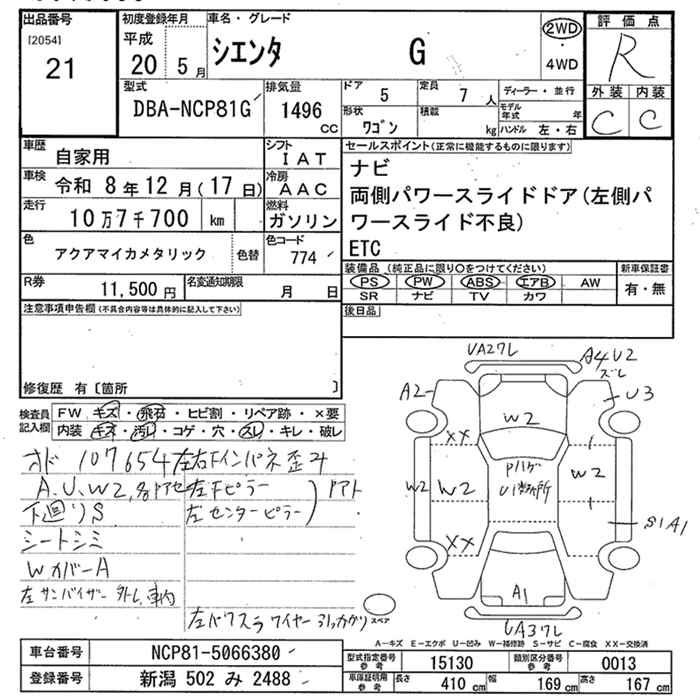 出品番号
[2054]
21
初度登録年月
平成
20 5 月
車名・グレード
シエンタ G
2WD
・
4WD
評価点
R
外装 内装
C C
型式
DBA-NCP81G
排気量
1496
cc
ドア 5
定員 7 人
ディーラー・並行
形状
ワゴン
積載
kg
モデル年式 年
ハンドル 左・右
車歴 自家用
シフト
IAT
車検 令和 8年12月(17日)
冷房
AAC
走行 10万7千700 km
燃料
ガソリン
色 アクアマイカメタリック
色替
色コード
774
R券 11,500 円
名変通知期限
月 日
セールスポイント(正常に機能するものに限ります)
ナビ
両側パワースライドドア(左側パ
ワースライド不良)
ETC
装備品(純正品に限り○をつけてください)
PS PW ABS エアB AW
SR ナビ TV カワ
新車保証書
有・無
後日品
注意事項申告欄(不具合内容等は具体的に記入して下さい)
修復歴 有〔箇所 〕
検査員
記入欄
FW キズ・飛石・ヒビ割・リペア跡・×要
内装 キズ・汚レ・コゲ・穴・スレ・キレ・破レ
オド 107654 左右Fインパネ歪み
A.U.W2.各ドアセ 左Fピラー
下廻りS 左センターピラー
シートシミ
WカバーA
左サンバイザー外れ.車内
UA27L
A4U2
ズレ
A2
U3
W2
XX
W2
W2
W2
S1A1
XX
A1
UA37L
スペア
A―キズ E―エクボ U―凹み W―補修跡 S―サビ C―腐食 XX―交換済
車台番号 NCP81-5066380
登録番号 新潟 502 み 2488
型式指定番号
参考
15130
類別区分番号
参考
0013
車庫証明用
参考
長さ 410 cm
幅 169 cm
高さ 167 cm